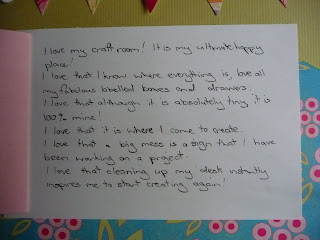 I love my craft room! It is my ultimate happy
place!
I love that I know where everything is, love all
my fabulous labelled boxes and drawers.
I love that although it is absolutely tiny, it is
100% mine!
I love that it is where I come to create.
I love that a big mess is a sign that I have
been working on a project.
I love that cleaning up my desk instantly
inspires me to start creating again!